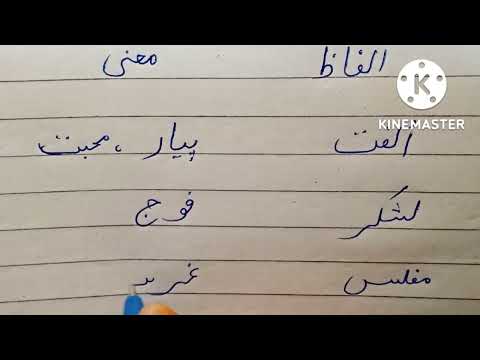 الفاظ معنی
K
KINEMASTER
الفت پیار، محبت
لشکر فوج
مفلس غریب